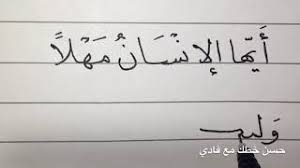 أَيُّهَا الإِنْسَانُ مَهْلاً
وَليـ
حسن خطك مع فادي